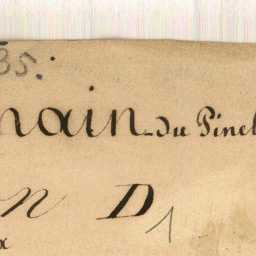 35.
main-du Pinel
n D
1
x